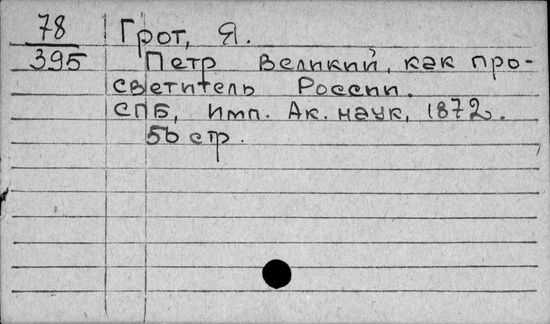 78 Грот, Я.
395 Петр Великий, как про-
светитель России.
СПБ, Имп. Ак. наук, 1872.
56 стр.